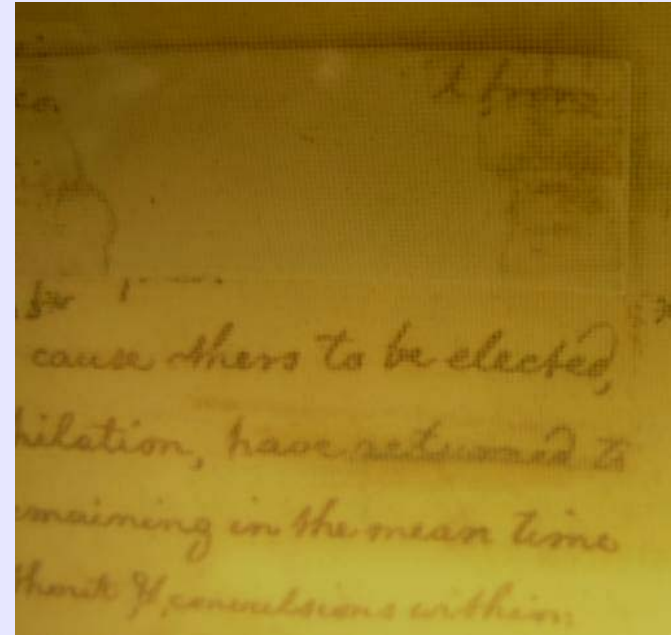 cause thers to be elected,
hilation, have returned to
emaining in the mean time
thout & convulsions within